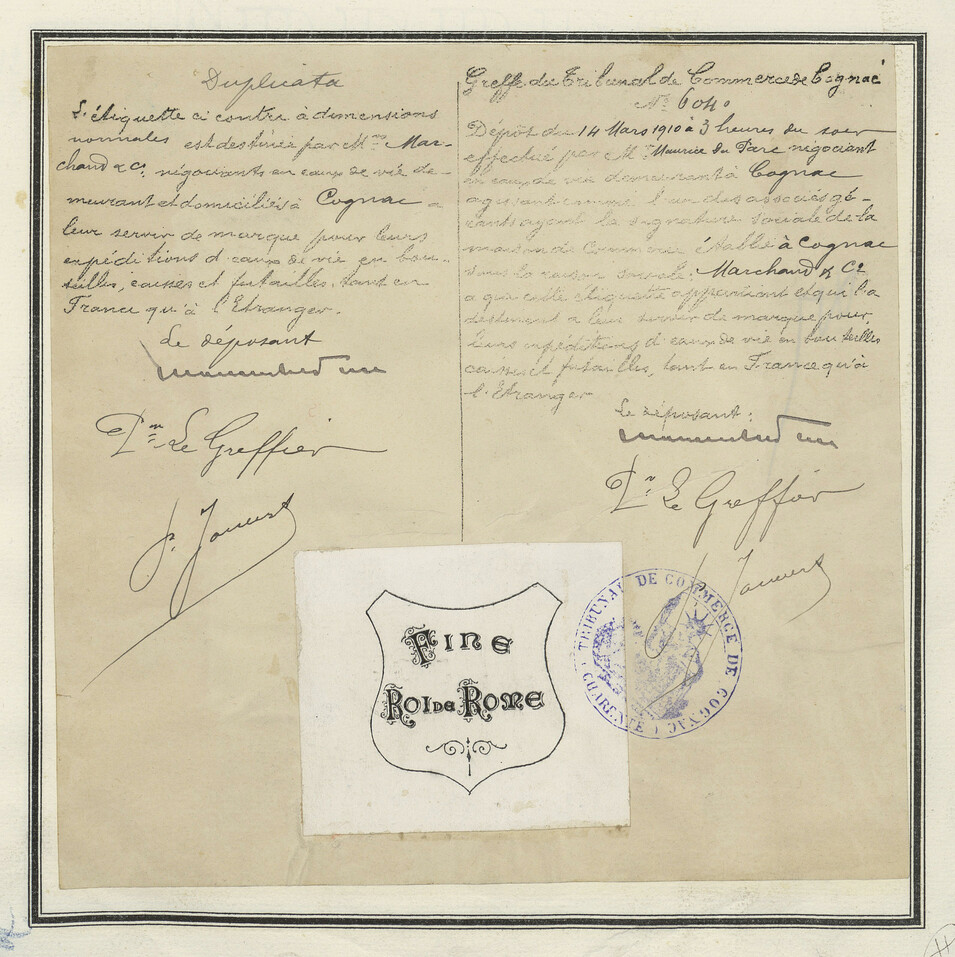 Duplicata
L'étiquette ci contre à dimensions
normales est destinée par Mrs Mar-
chand & Cie négociants en eaux de vie de-
meurant et domiciliés à Cognac a
leur servir de marque pour leurs
expéditions d'eaux de vie en bou-
teilles, caisses et futailles, tant en
France qu'à l'Etranger.
Le déposant
Pr Le Greffier
Greffe du Tribunal de Commerce de Cognac
No 604.
Dépôt du 14 Mars 1910 à 3 heures du soir
effectué par Mr Maurice du Parc négociant
en eaux de vie demeurant à Cognac
agissant comme l'un des associés gé-
rants ayant la signature sociale de la
maison de Commerce établie à Cognac
sous la raison sociale: Marchand & Cie
a qui cette étiquette appartient et qui l'a
destinent a leur servir de marque pour
leurs expéditions d'eaux de vie en bouteilles
caisses et futailles, tant en France qu'à
l'Etranger
Le déposant:
Pr Le Greffier
FINE
ROI DE ROME
TRIBUNAL DE COMMERCE DE COGNAC
(CHARENTE)